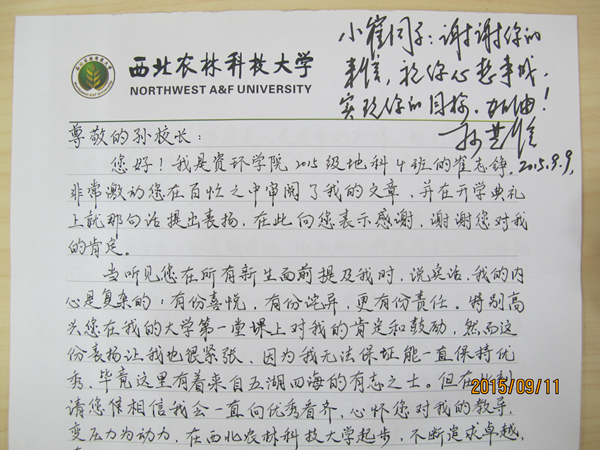 西北农林科技大学
NORTHWEST A&F UNIVERSITY
小崔同学：谢谢你的
来信，祝你心想事成，
实现你的目标。加油！
孙其信
2015.9.9.
尊敬的孙校长：
您好！我是资环学院2015级地科4班的崔志铮，
非常激动您在百忙之中审阅了我的文章，并在开学典礼
上就那句话提出表扬，在此向您表示感谢，谢谢您对我
的肯定。
当听见您在所有新生面前提及我时，说实话，我的内
心是复杂的：有份喜悦，有份诧异，更有份责任。特别高
兴您在我的大学第一堂课上对我的肯定和鼓励，然而这
份表扬让我也很紧张、因为我无法保证能一直保持优
秀，毕竟这里有着来自五湖四海的有志之士。但在此
请您相信我会一直向优秀看齐，心怀您对我的教导，
变压力为动力，在西北农林科技大学起步，不断追求卓越，
2015/09/11